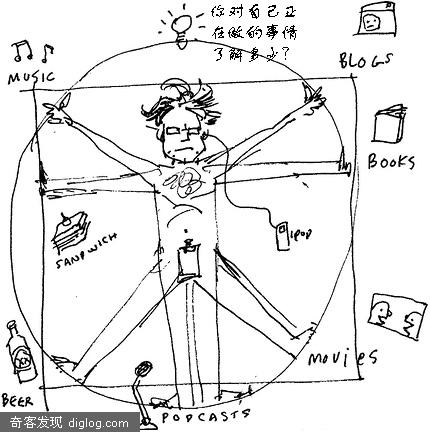 你对自己正
在做的事情
了解多少？
MUSIC
BLOGS
BOOKS
SANDWICH
IPOD
MOVIES
BEER
PODCASTS
奇客发现 diglog.com